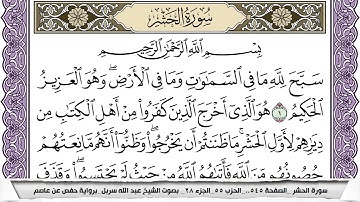 سُورَةُ الحَشْرِ
بِسْمِ اللَّهِ الرَّحْمَٰنِ الرَّحِيمِ
سَبَّحَ لِلَّهِ مَا فِي السَّمَاوَاتِ وَمَا فِي الْأَرْضِ ۖ وَهُوَ الْعَزِيزُ
الْحَكِيمُ ١ هُوَ الَّذِي أَخْرَجَ الَّذِينَ كَفَرُوا مِنْ أَهْلِ الْكِتَابِ مِن
دِيَارِهِمْ لِأَوَّلِ الْحَشْرِ ۚ مَا ظَنَنتُمْ أَن يَخْرُجُوا ۖ وَظَنُّوا أَنَّهُم مَّانِعَتُهُمْ
حُصُونُهُم مِّنَ اللَّهِ فَأَتَاهُمُ اللَّهُ مِنْ حَيْثُ لَمْ يَحْتَسِبُوا ۖ وَقَذَفَ
سورة الحشر_ الصفحة ٥٤٥_ الحزب ٥٥_ الجزء ٢٨_ بصوت الشيخ عبد الله سربل برواية حفص عن عاصم